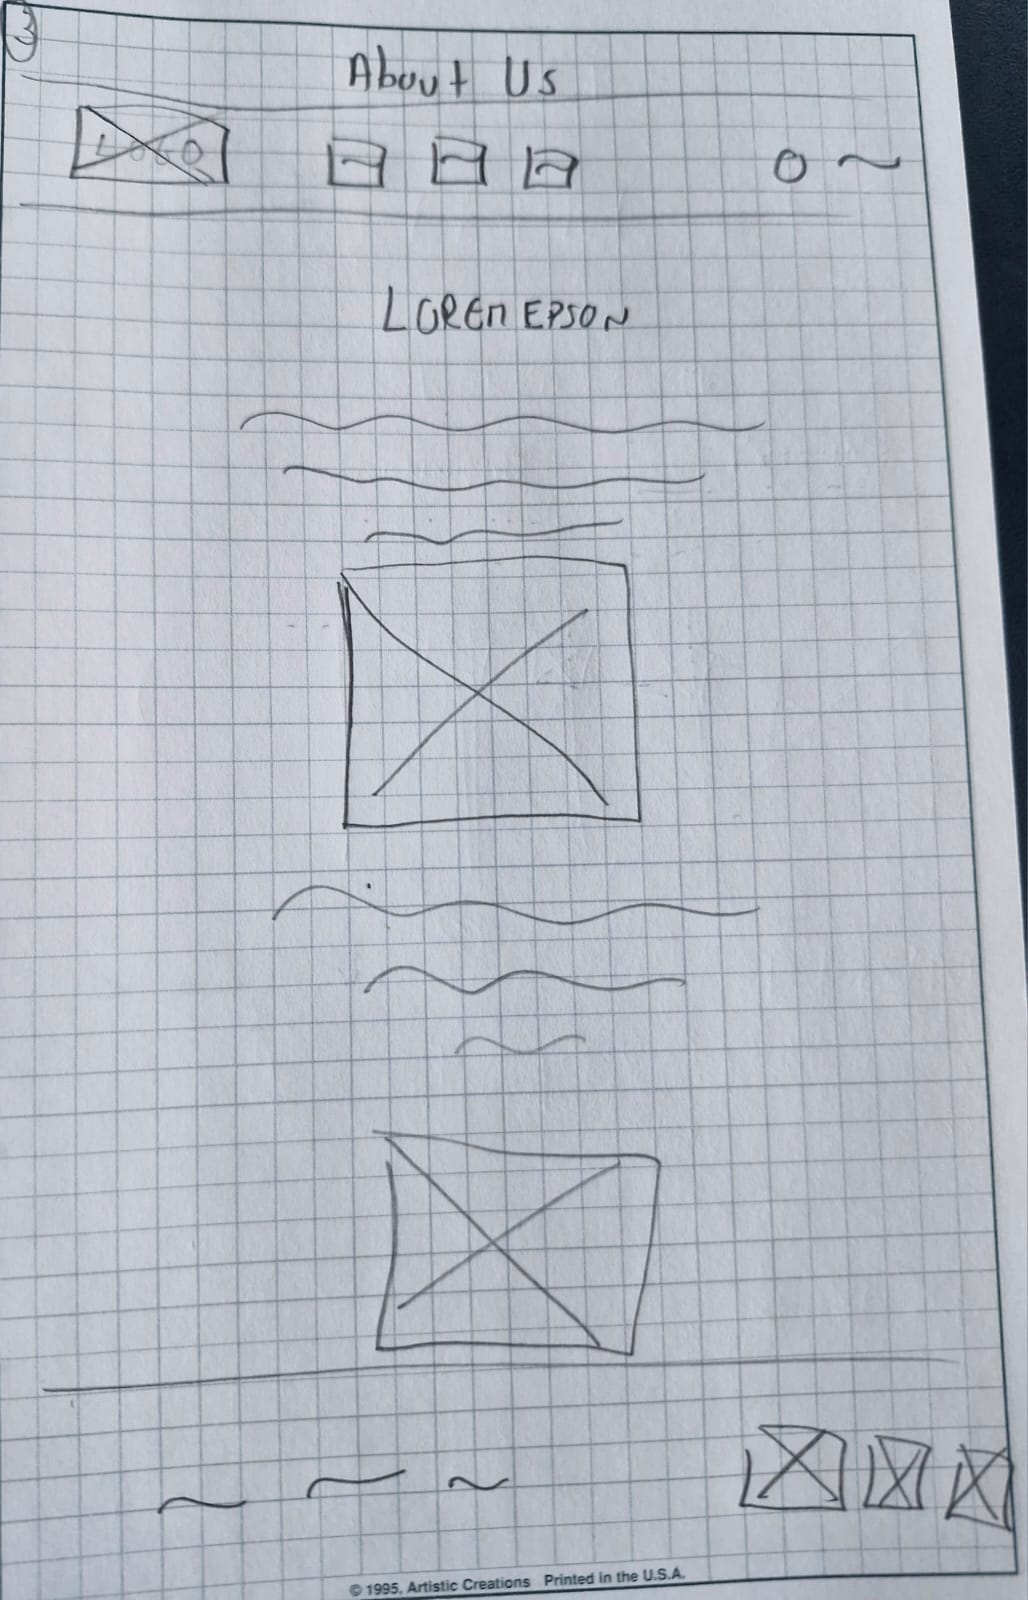 3
About Us
LOGO
LOREM EPSON
© 1995, Artistic Creations Printed in the U.S.A.